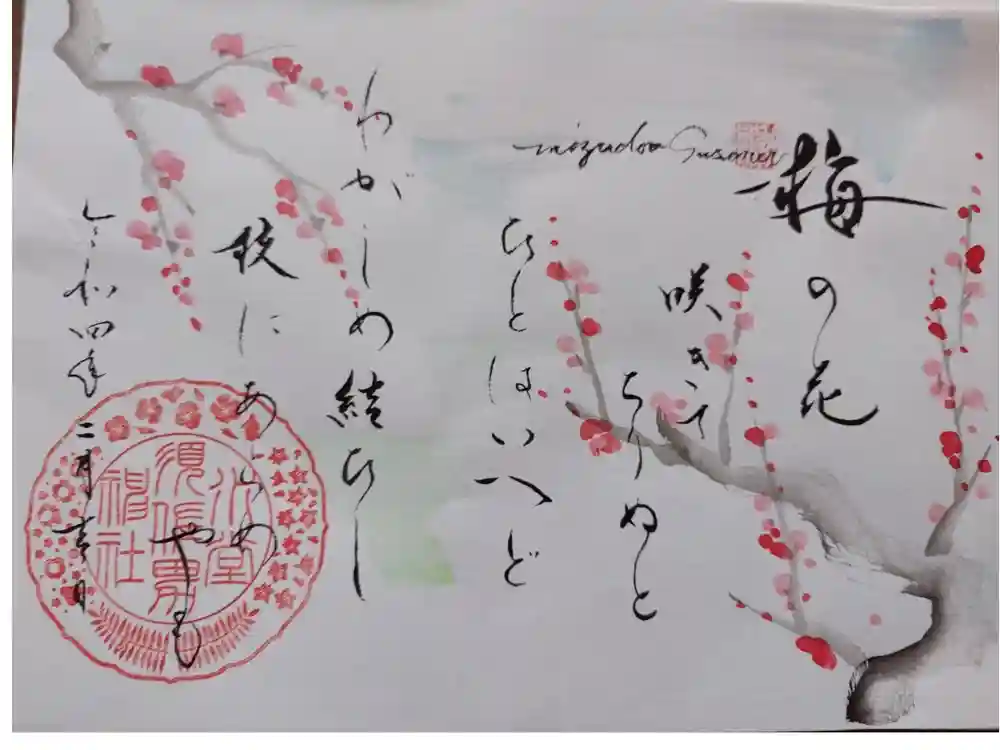 梅の花
咲きて
ちりぬと
ひとはいへど
わがしめ結ひし
枝にあらめ
やも
令和四年二月吉日
水堂
須佐男
神社